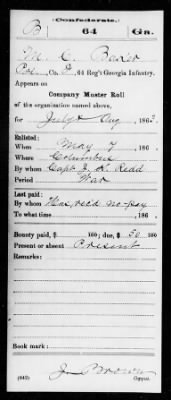 Confederate.
B 64 Ga.
M. C. Baker
Co. , 64 Reg't Georgia Infantry.
Appears on
Company Muster Roll
of the organization named above,
for July & Aug , 1863.
Enlisted:
When May 7 , 186
Where Columbus
By whom Capt J. K. Redd
Period War
Last paid:
By whom Has rec'd no pay
To what time , 186
Bounty paid, $ 100; due, $ 50 100
Present or absent Present
Remarks:
Book mark:
(642) J. Brown
Copyist.